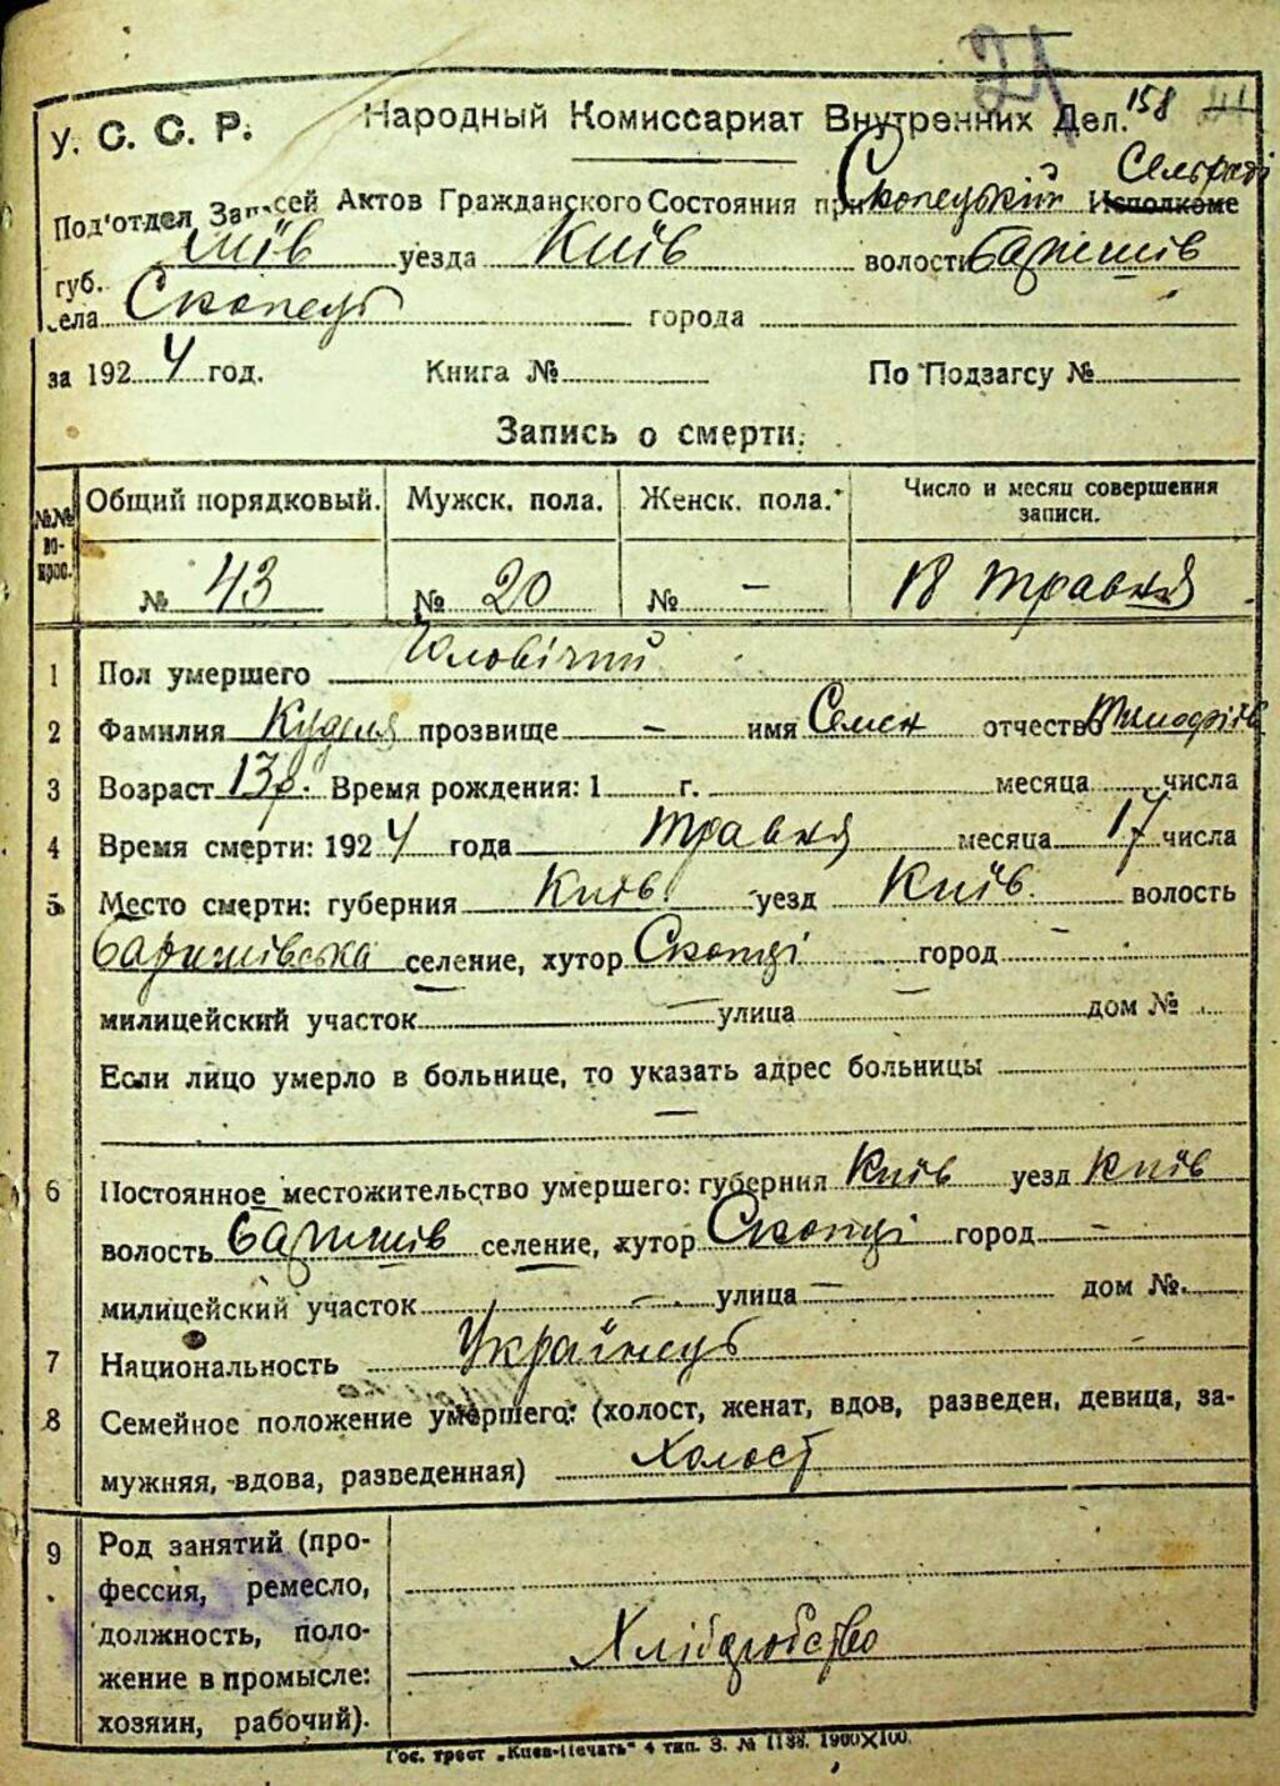 21
158
У. С. С. Р. Народный Комиссариат Внутренних Дел.
Сельраді
Под'отдел Записей Актов Гражданского Состояния при Скопецький Исполкоме
губ. Київ уезда Київ волости Баришів
села Скопець города
за 1924 год. Книга № По Подзагсу №
Запись о смерти.
№№ вопрос. Общий порядковый. Мужск. пола. Женск. пола. Число и месяц совершения записи.
№ 43 № 20 № — 18 травня
1 Пол умершего Чоловічий
2 Фамилия прозвище — имя Семен отчество Тимофіїв
3 Возраст 13 р. Время рождения: 1 г. месяца числа
4 Время смерти: 1924 года травня месяца 17 числа
5 Место смерти: губерния Київ. уезд Київ. волость
Баришівська селение, хутор Скопці город —
милицейский участок — улица — дом №
Если лицо умерло в больнице, то указать адрес больницы
—
6 Постоянное местожительство умершего: губерния Київ уезд Київ
волость Баришів селение, хутор Скопці город —
милицейский участок — улица — дом №
7 Национальность Українець
8 Семейное положение умершего: (холост, женат, вдов, разведен, девица, за-
мужняя, вдова, разведенная) Холост
9 Род занятий (про-
фессия, ремесло,
должность, поло-
жение в промысле:
хозяин, рабочий).
Хліборобство
Гос. трест „Киев-Печать" 4 тип. З. № 1188. 1900×100.